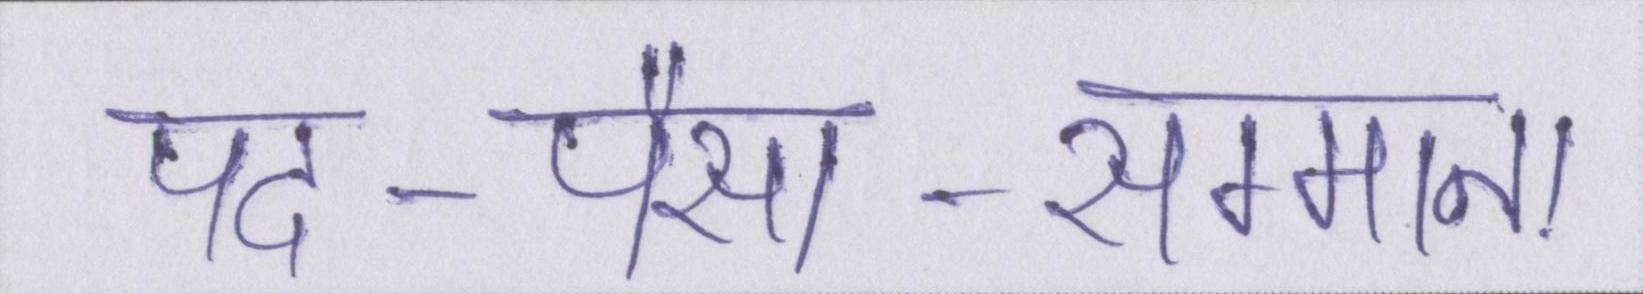 पद-पैसा-सम्मान!